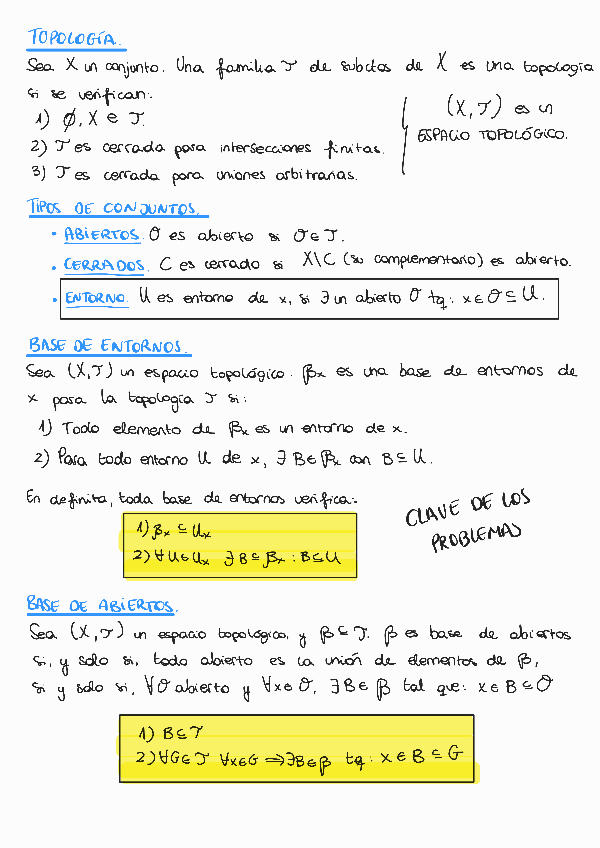 TOPOLOGÍA.
Sea X un conjunto. Una familia 𝒯 de subctos de X es una topología
si se verifican:
1) ∅, X ∈ 𝒯.
2) 𝒯 es cerrada para intersecciones finitas.
3) 𝒯 es cerrada para uniones arbitrarias.
(X, 𝒯) es un
ESPACIO TOPOLÓGICO.
TIPOS DE CONJUNTOS.
• ABIERTOS. O es abierto si O ∈ 𝒯.
• CERRADOS. C es cerrado si X\C (su complementario) es abierto.
• ENTORNO. U es entorno de x, si ∃ un abierto O tq: x ∈ O ⊆ U.
BASE DE ENTORNOS.
Sea (X, 𝒯) un espacio topológico. βx es una base de entornos de
x para la topología 𝒯 si:
1) Todo elemento de βx es un entorno de x.
2) Para todo entorno U de x, ∃ B ∈ βx con B ⊆ U.
En definita, toda base de entornos verifica:
1) βx ⊆ Ux
2) ∀ U ∈ Ux ∃ B ⊆ βx : B ⊆ U
CLAVE DE LOS
PROBLEMAS
BASE DE ABIERTOS.
Sea (X, 𝒯) un espacio topológico, y β ⊆ 𝒯. β es base de abiertos
si, y solo si, todo abierto es la unión de elementos de β,
si y solo si, ∀ O abierto y ∀x ∈ O, ∃ B ∈ β tal que: x ∈ B ⊆ O
1) B ⊆ 𝒯
2) ∀G ∈ 𝒯 ∀x ∈ G ⇒ ∃B ∈ β tq: x ∈ B ⊆ G